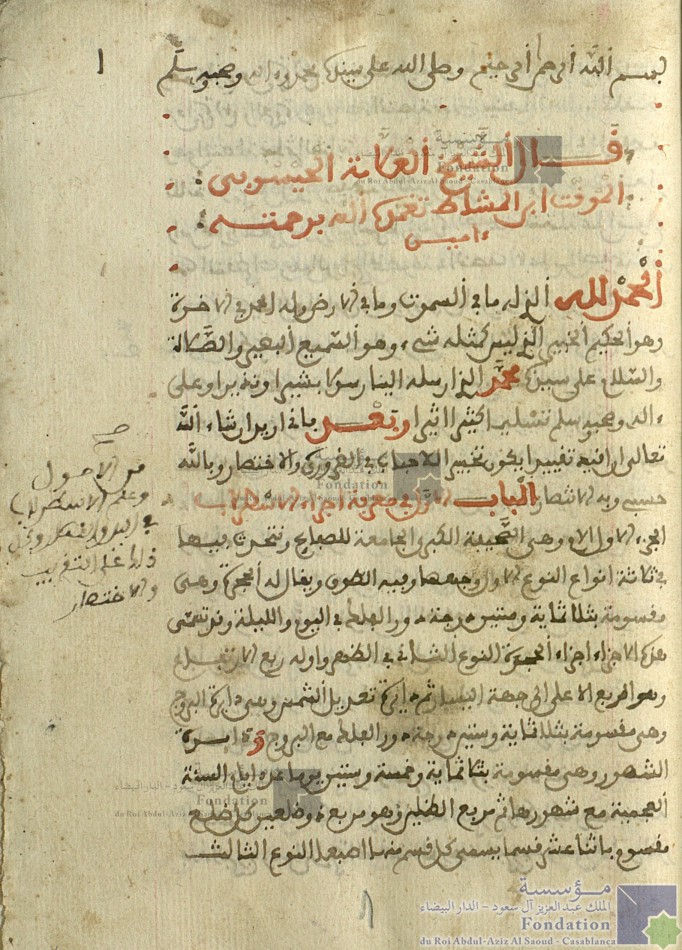 1
بسم الله الرحمن الرحيم وصلى الله على سيدنا محمد وءاله وصحبه وسلم
قال الشيخ العلامة الحيسوبي
الموقت ابن المشاط تغمده الله برحمته
ءامين
الحمد لله الذي له ما في السموت وما في الارض وله الحمد في الاخرة
وهو الحكيم الخبير الذي ليس كمثله شيء وهو السميع البصير والصلاة
والسلام على سيدنا محمد الذي ارسله الينا رسولا بشيرا ونذيرا وعلى
ءاله وصحبه وسلم تسليما كثيرا اثيرا وبعد فاني اريد ان شاء الله
تعالى ان اقيد تقييدا يكون
في الضروري والاختصار وبالله
حسبي وبه الانتصار الباب الاول في معرفة اجزاء الاسطرلاب
الجزء الاول الام وهي الصحيفة الكبرى الجامعة للصفايح ونتحدث فيها
في ثلاثة انواع النوع الاول وجهها وفيه الطوق ويقال له الحجرة وهي
مقسومة بثلاثماية وستين درجة دور الفلك في اليوم والليلة وقد تسمى
هذه الاجزاء اجزاء الحجرة النوع الثاني في الظهر واوله ربع الارتفاع
وهو الربع الاعلى الى جهة اليسار ثم دايرة تعديل الشمس وهي دايرة البروج
وهي مقسومة بثلاثماية وستين درجة دور الفلك مع البروج ودايرة
الشهور وهي مقسومة بثلاثماية وخمسة وستين يوما عدد ايام السنة
العجمية مع شهورها ثم مربع الظلين وهو مربع ذو ضلعين كل ضلع
مقسوم باثنا عشر قسما يسمى كل قسم منها اصبعا النوع الثالث
من الاصول
وعلم الاسطرلاب
ذلك على التقريب
والاختصار
مؤسسة
الملك عبد العزيز آل سعود - الدار البيضاء
Fondation
du Roi Abdul-Aziz Al Saoud - Casablanca